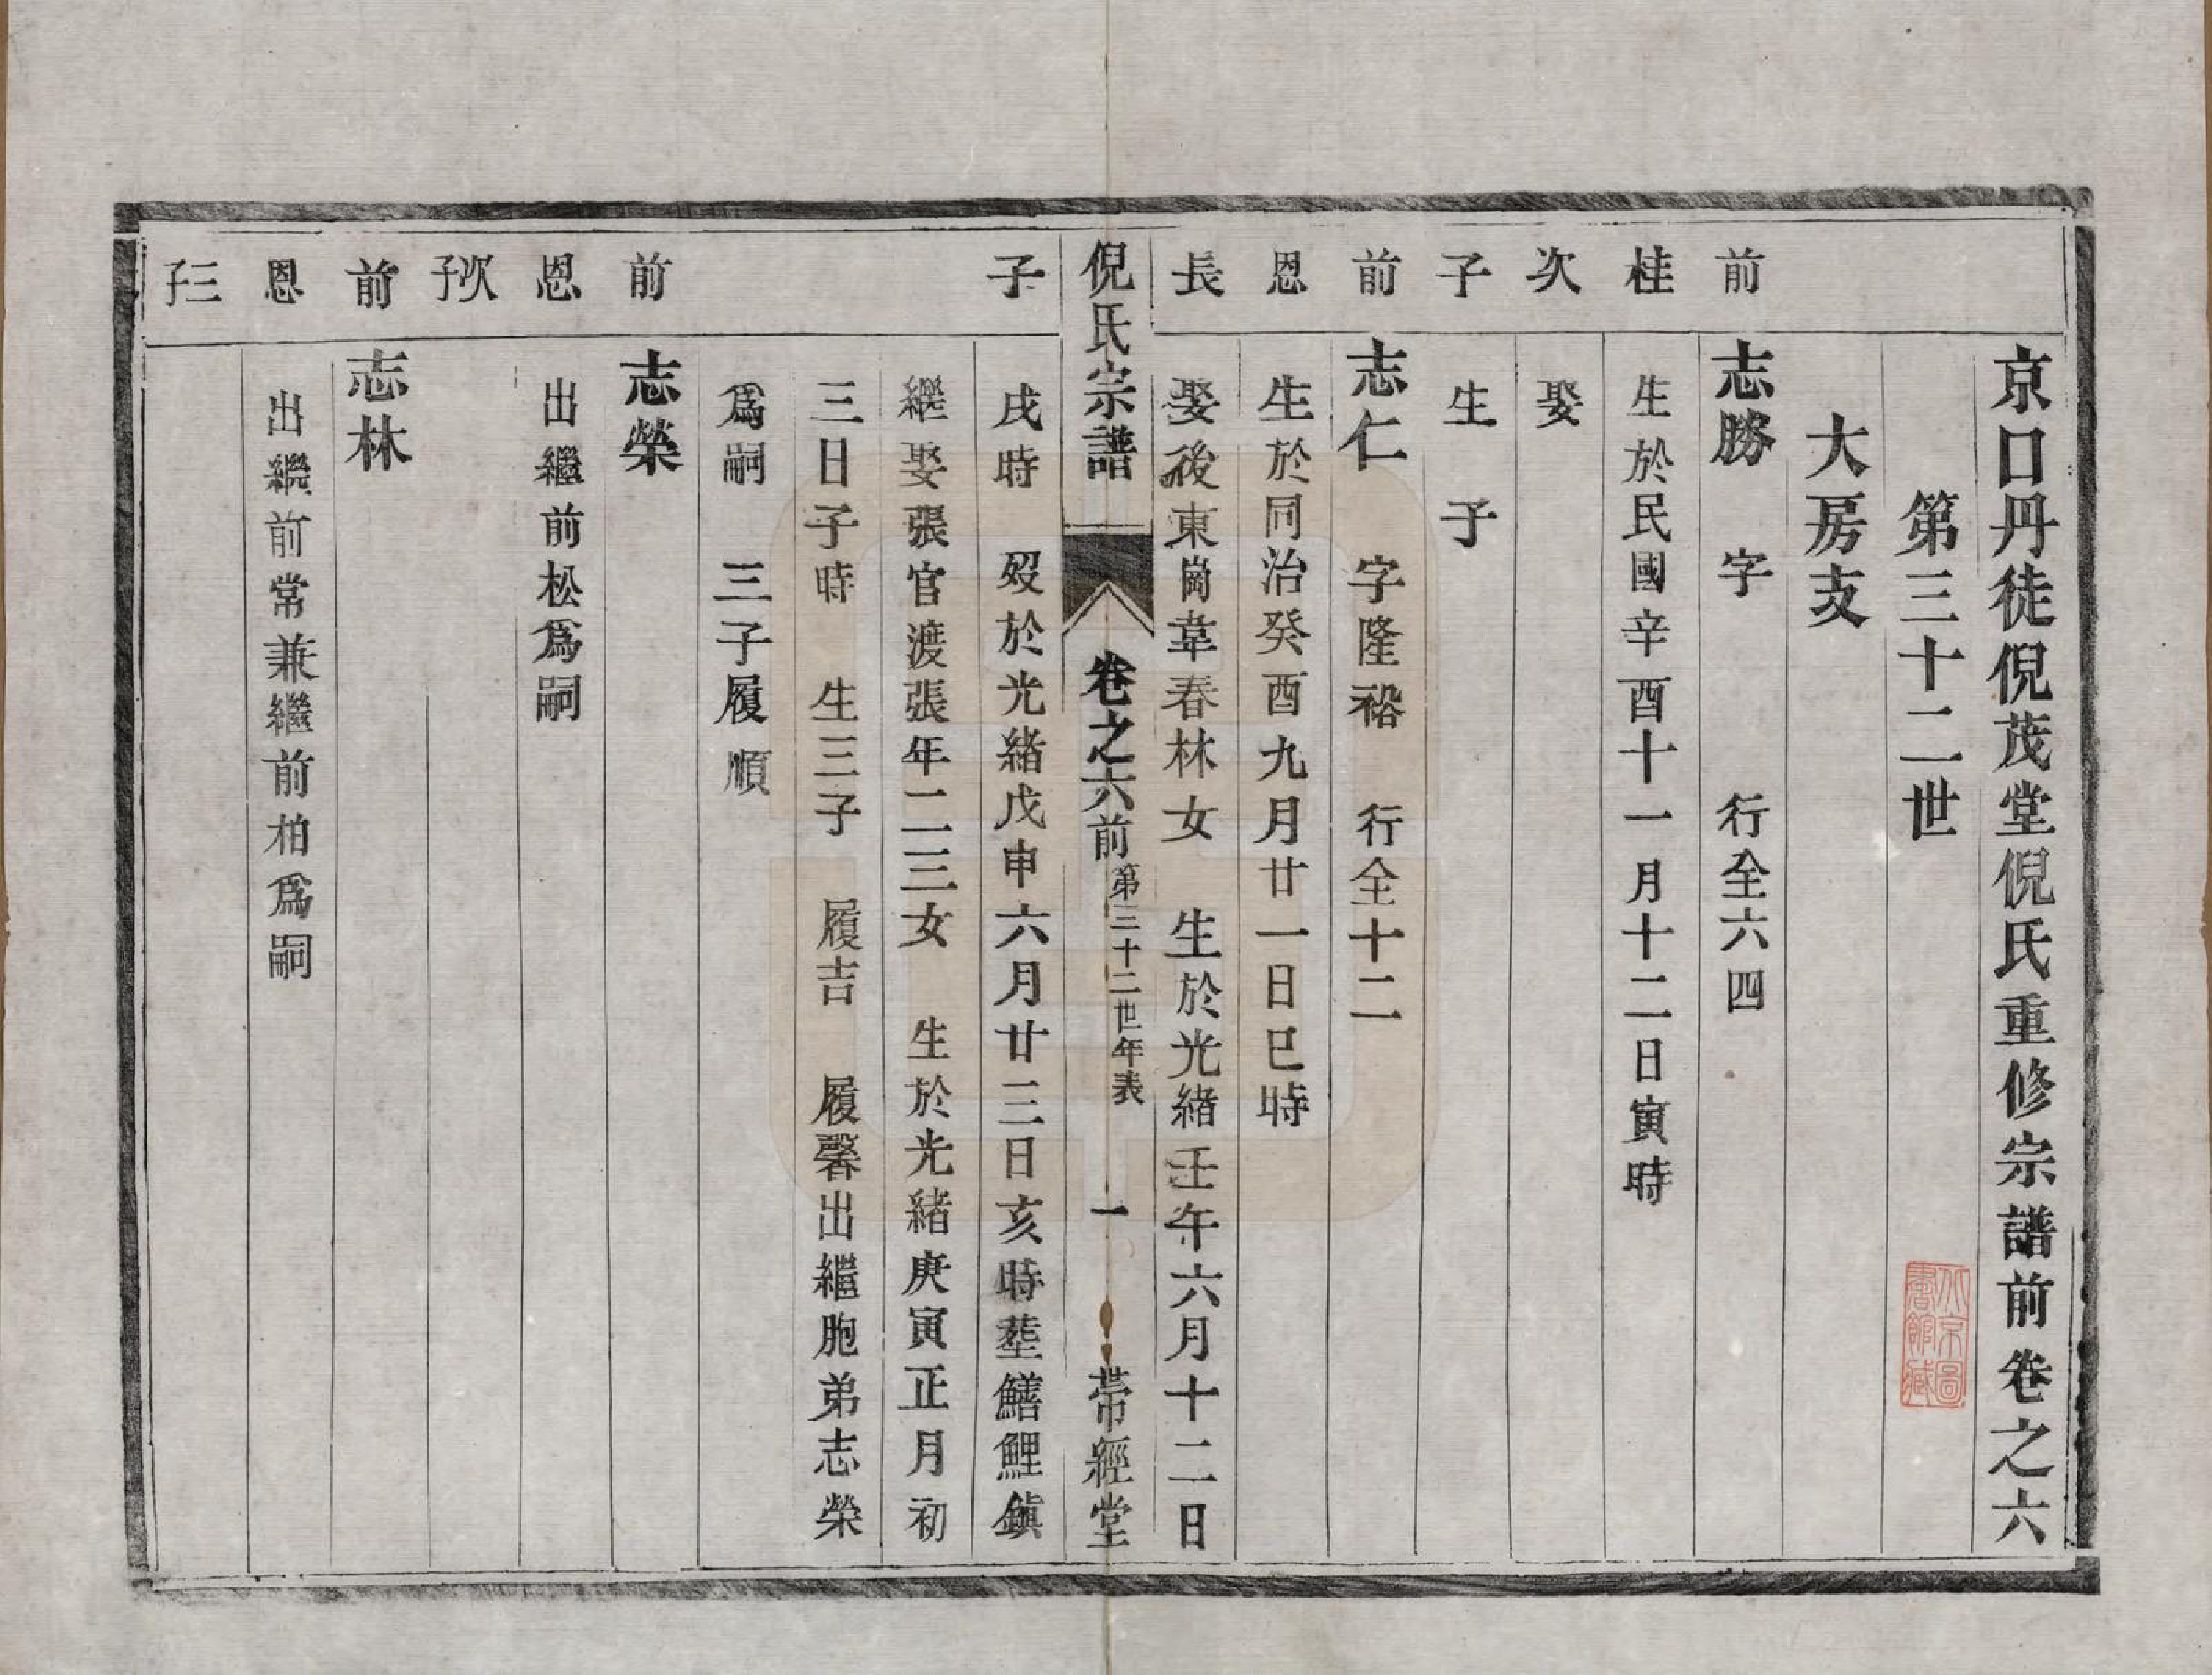 京口丹徒倪茂堂倪氏重修宗譜前卷之六
第三十二世
大房支
前桂次子
志勝 字 行全六四
生於民國辛酉十一月十二日寅時
娶
生 子
前恩長子
志仁 字隆裕 行全十二
生於同治癸酉九月廿一日巳時
娶後東崗韋春林女 生於光緒壬午六月十二日
倪氏宗譜 卷之六前 第三十二世年表 一 帶經堂
戌時 歿於光緒戊申六月廿三日亥時塟鱔鯉鎮
繼娶張官渡張年二三女 生於光緒庚寅正月初
三日子時 生三子 履吉 履馨出繼胞弟志榮
爲嗣 三子履順
前恩次子
志榮
出繼前松爲嗣
前恩三子
志林
出繼前常兼繼前柏爲嗣
北京圖書館藏